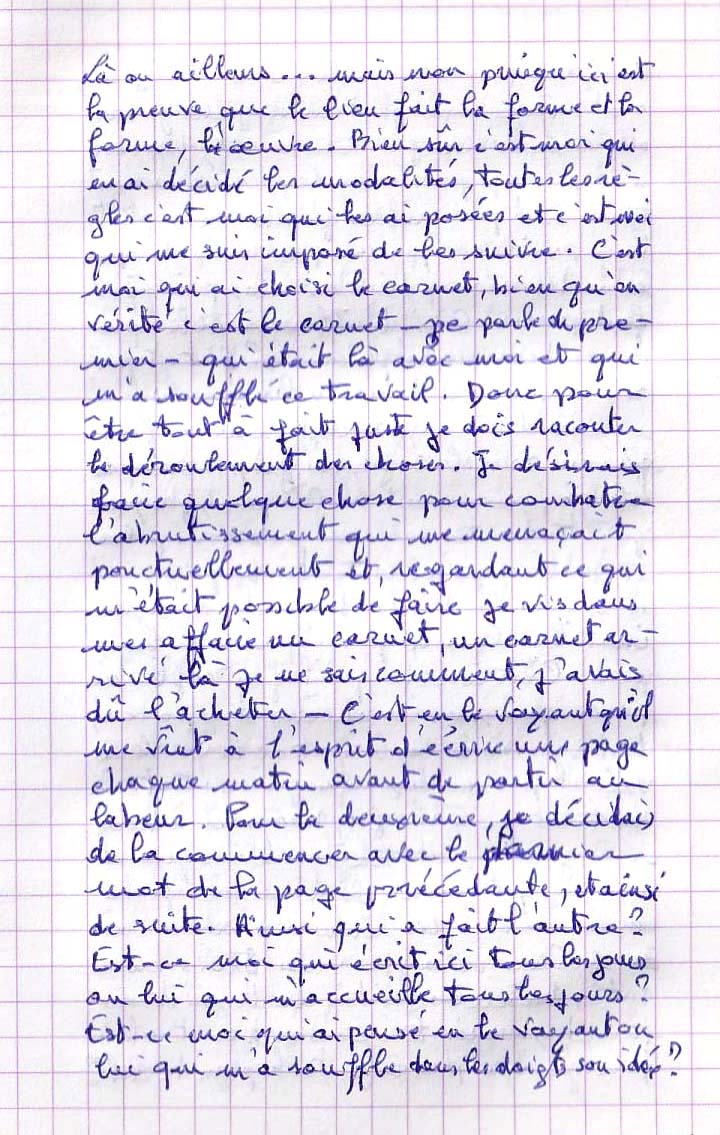 Là ou ailleurs... mais non puisqu'ici est
la preuve que le lieu fait la forme et la
forme, l'oeuvre. Bien sûr c'est moi qui
en ai décidé les modalités, toutes les rè-
gles c'est moi qui les ai posées et c'est moi
qui me suis imposé de les suivre. C'est
moi qui ai choisi le carnet, bien qu'en
vérité c'est le carnet - je parle du pre-
mier - qui était là avec moi et qui
m'a soufflé ce travail. Donc pour
être tout à fait juste je dois raconter
le déroulement des choses. Je désirais
faire quelque chose pour combattre
l'abrutissement qui me menaçait
ponctuellement et, regardant ce qui
m'était possible de faire je vis dans
mes affaire un carnet, un carnet ar-
rivé là je ne sais comment, j'avais
dû l'acheter - C'est en le voyant qu'il
me vînt à l'esprit d'écrire une page
chaque matin avant de partir au
labeur. Pour la deuxième, je décidais
de la commencer avec le
mot de la page précédante, et ainsi
de suite. Ainsi qui a fait l'autre?
Est-ce moi qui écrit ici tous les jours
ou lui qui m'accueille tous les jours?
Est-ce moi qui ai pensé en le voyant ou
lui qui m'a soufflé dans les doigts son idée?